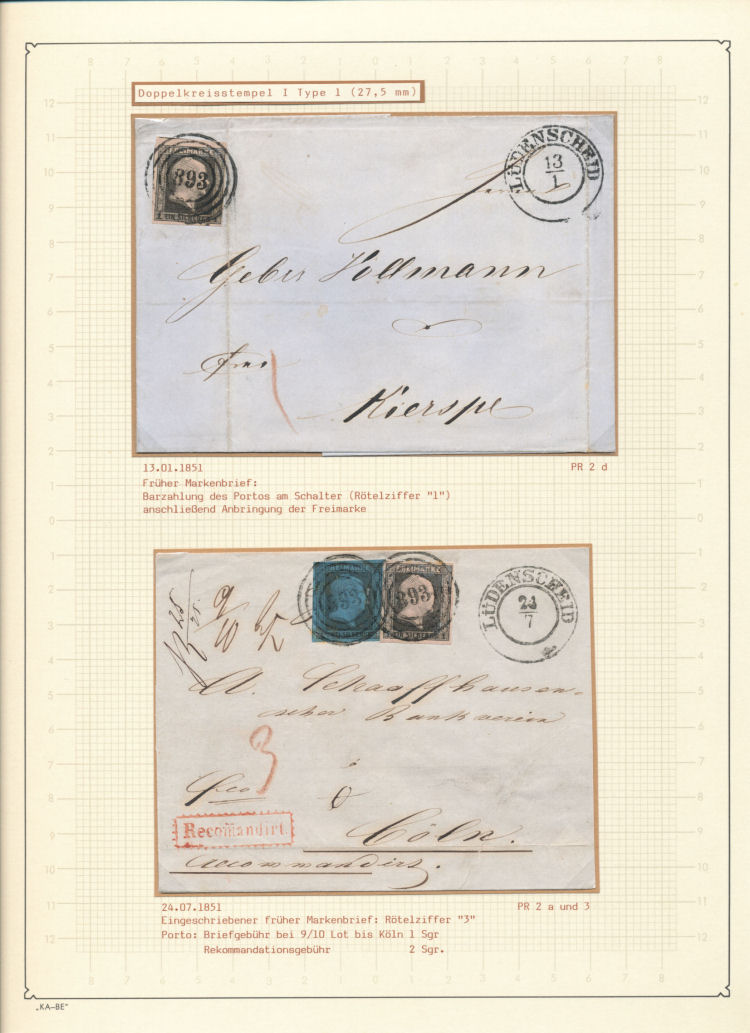 Doppelkreisstempel I Type 1 (27,5 mm)
FREIMARKE
893
EIN SILBERGR.
LÜDENSCHEID
13
1
Gebr Vollmann
1
Kierspe
13.01.1851
PR 2 d
Früher Markenbrief:
Barzahlung des Portos am Schalter (Rötelziffer "1")
anschließend Anbringung der Freimarke
FREIMARKE
FREIMARKE
893
893
LÜDENSCHEID
24
7
A. Schaaffhausen-
scher Bankverein
3
fco
Recomandirt
Cöln.
recommandirt.
24.07.1851
PR 2 a und 3
Eingeschriebener früher Markenbrief: Rötelziffer "3"
Porto: Briefgebühr bei 9/10 Lot bis Köln 1 Sgr
Rekommandationsgebühr 2 Sgr.
„KA–BE"